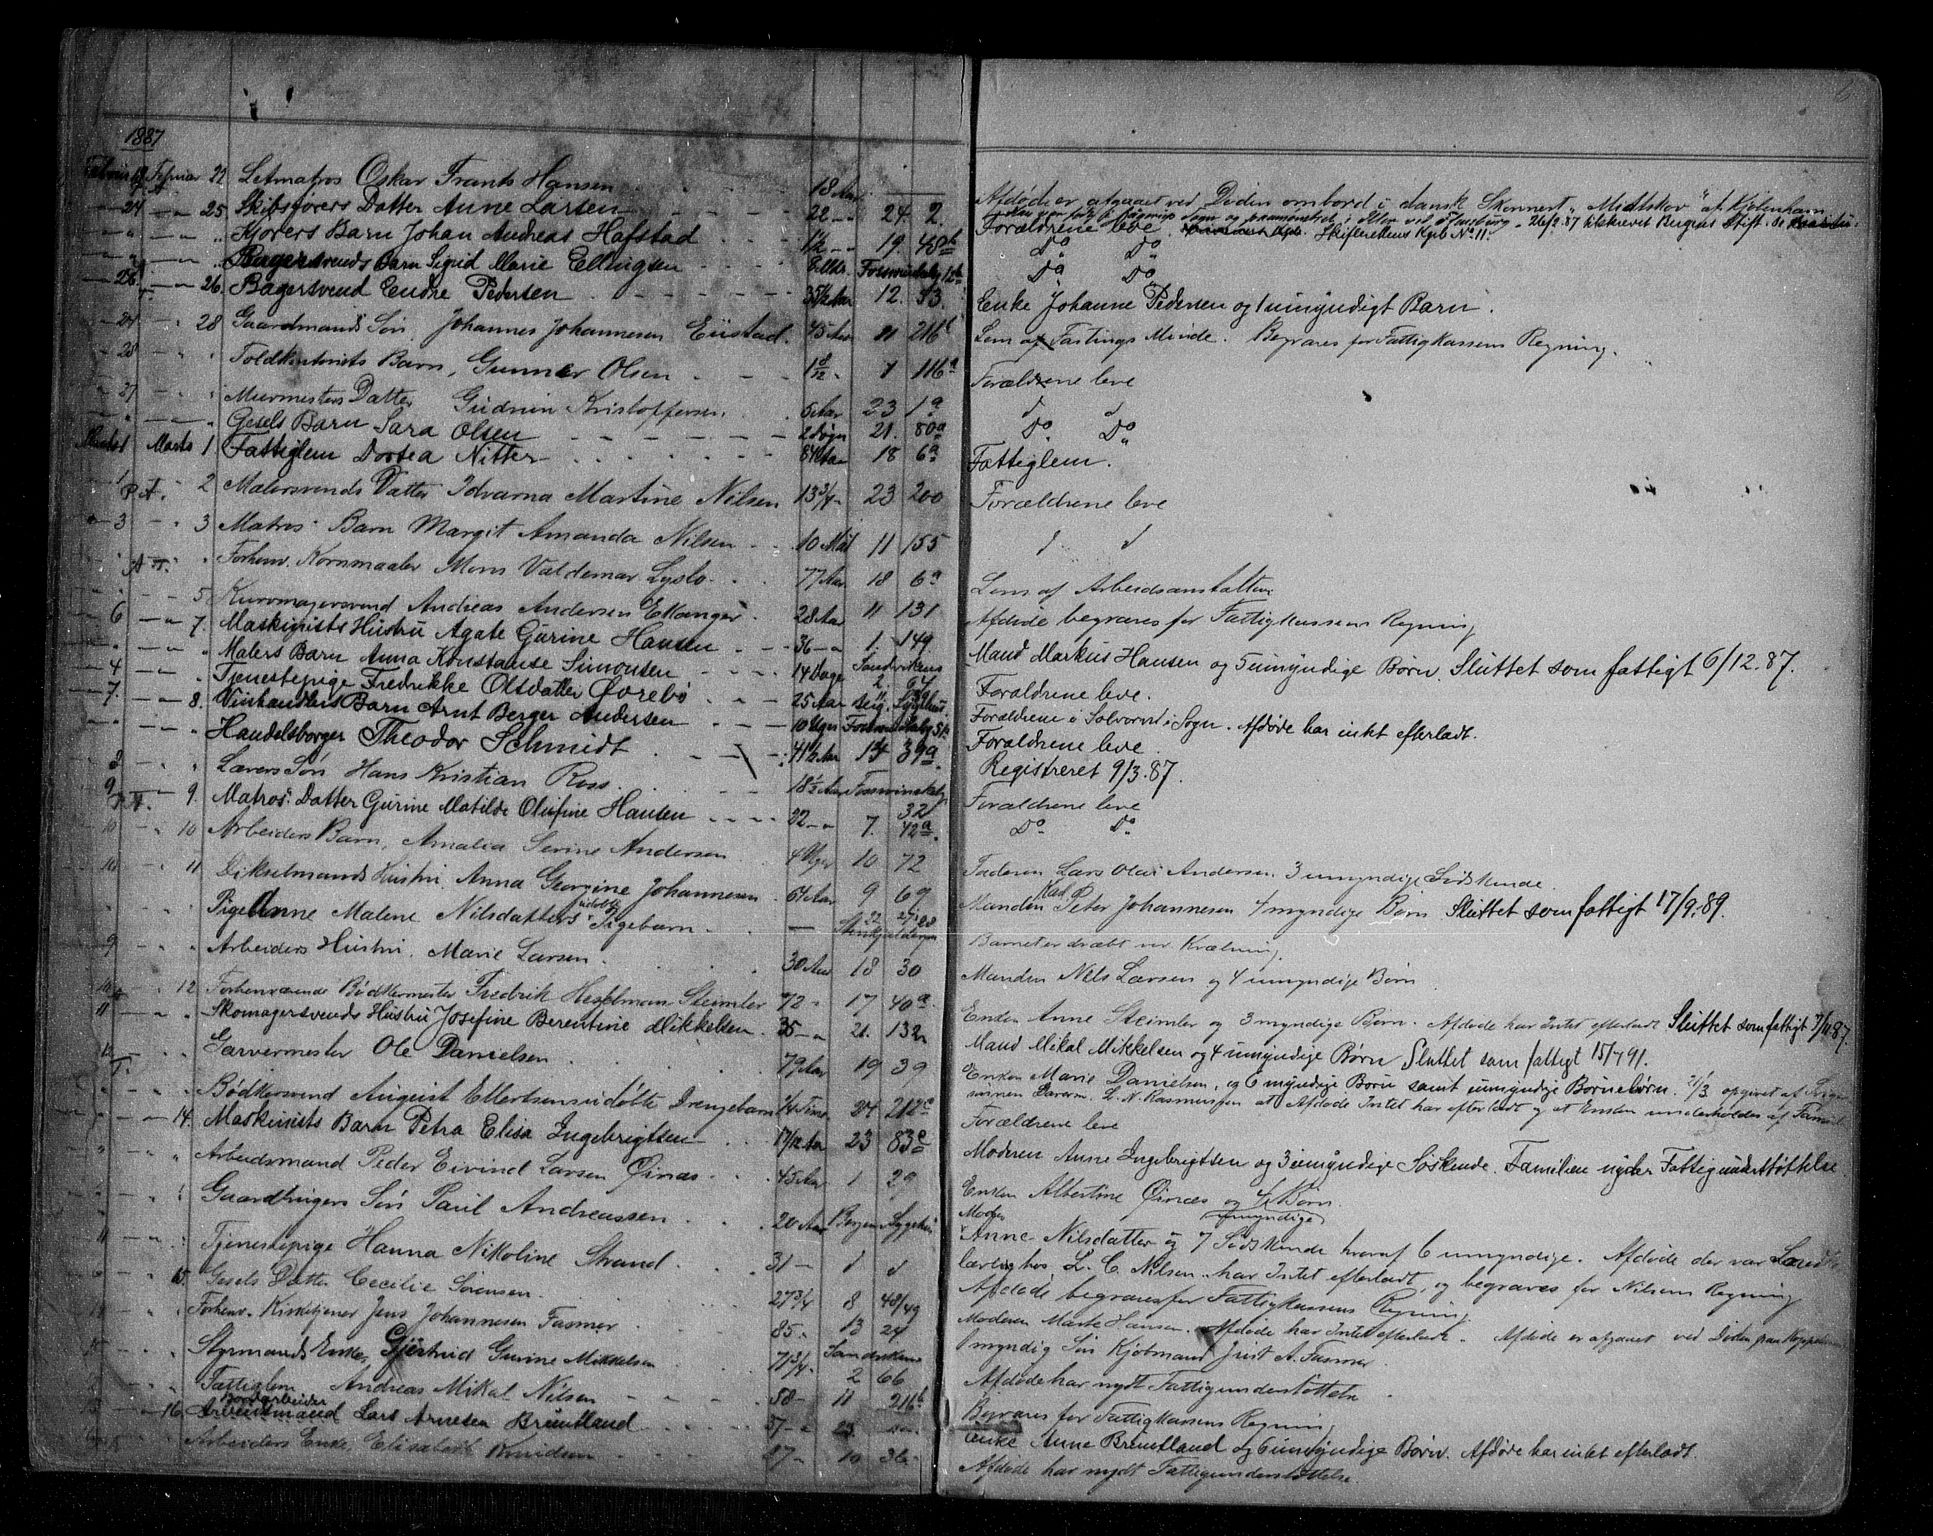 1887
Februar 19 Februar 22 Letmatros Oskar Frants Hansen 18 Aar
24 25 Skibsførers Datter Anne Larsen 22 24 2
Kjørers Barn Johan Andreas Hafstad 1½ 19 40b
Bagersvends Barn Sigrid Marie Ellingsen
26 26 Bagersvend Endre Pedersen 35½ Aar 12 53
24 28 Gaardmands Søn Johannes Johannesen Eiistad 45 Aar 11 216b
28 Toldkontorists Barn, Gunnar Olsen 1 8/12 1 116a
27 Muurmesters Datter Gudrun Kristoffersen 5 Aar 23 1a
Gesels Barn Sara Olsen 2 Døgn 21 80a
Marts 1 Marts 1 Fattiglem Dortea Nitter 84 Aar 18 6a
1 2 Malersvends Datter Idvarna Martine Nilsen 13 3/4 23 200
3 3 Matros Barn Margit Amanda Nilsen 10 Md 11 155
Forhenv. Kornmaaler Mons Valdemar Lysbo 77 Aar 18 6a
5 Kurvmagersvend Andreas Andersen Ekanger 28 Aar 11 131
6 7 Maskinists Hustru Agate Gurine Hansen 36 1 149
Malers Barn Anna Konstanse Simonsen 14 Dage Sandvikens 2 64
4 Tjenestepige Fredrikke Olsdatter Dorebø 25 Aar
7 8 Vinhandlers Barn Arnt Berger Andersen 10 Uger
Handelsborger Theodor Schmidt 41½ Aar 14 39a
Lærers Søn Hans Kristian Ross 18½ Aar 32
9 9 Matros Datter Gurine Matilde Olufine Hansen 22 7 42a
10 10 Arbeiders Barn, Amalia Serine Andersen 4 Uger 10 72
10 11 Dikselmands Hustru, Anna Georgine Johannesen 64 Aar 9 69
Pige Anne Malene Nilsdatters udøbte Pigebarn
9 Arbeiders Hustru, Marie Larsen 30 Aar 18 30
10 12 Forhenværende Bødkermester Fredrik Hesselman Steimler 72 17 40a
11 Skomagersvends Hustru Josefine Berentine Mikkelsen 35 21 132
Garvermester Ole Danielsen 79 Aar 19 39
Bødkersvend August Ellertsens udøbte Drengebarn 24 212c
14 Maskinists Barn Petra Elisa Ingebrigtsen 23 83c
Arbeidsmand Peder Eivind Larsen Øinæs 45 Aar 1 29
Gaardbrugers Søn Paul Andreassen 20 Aar Bergens Sygehus
11 Tjenestepige Hanna Nikoline Strand 31
15 Gesels Datter Cecilie Sørensen 27 3/4 8 48/49
Forhenv. Kirketjener Jens Johannesen Fasmer 85 13 24
Styrmands Enke, Gjertrud Gurine Mikkelsen 71 3/4 Sandvikens 2 66
Fattiglem Andreas Mikal Nilsen 58 11 216b
16 Arbeidsmand Jordarbeider Lars Arnesen Bruntland 57 23
Arbeiders Enke, Elisabeth Knudsen 87 10 36
Afdøde er afgaaet ved Døden ombord i dansk Skonnert "Midtskov" af Kjøbenhavn
Forældrene leve. Skifterettens Kopb No 11.
Do Do
Do Do
Enke Johanne Pedersen og 1 umyndigt Barn.
Lem af Fastings Minde. Begraves for Fattigkassens Regning.
Forældrene leve
d d
Do Do
Fattiglem.
Forældrene leve
d d
Lem af Arbeidsanstalten
Afdøde begraves for Fattigkassens Regning
Mand Markus Hansen og 5 umyndige Børn. Sluttet som fattigt 6/12.87.
Forældrene leve.
Forældrene i Solvorn i Sogn. Afdøde har intet efterladt.
Forældrene leve.
Registreret 9/3.87.
Forældrene leve
Do Do
Faderen Lars Olai Andersen. 3 umyndige Sødskende.
Manden Karl P. Peter Johannesen 4 myndige Børn Sluttet som fattigt 17/9.89.
Barnet er dræbt ved Kvælning
Manden Nils Larsen og 4 umyndige Børn
Enken Anne Steimler og 3 myndige Børn. Afdøde har Intet efterladt Sluttet som fattigt 7/11 87.
Mand Mikal Mikkelsen og 4 umyndige Børn Sluttet som fattigt 15/7 91.
Enken Marie Danielsen, og 6 myndige Børn samt umyndige Børnebørn. 21/3 opgivet af
L. N. Rasmussen at Afdøde Intet har efterladt og at Enken underholdes af Familie
Forældrene leve
Moderen Anne Ingebrigtsen og 3 umyndige Søskende. Familien nyder Fattigunderstøttelse
Enken Albertine Øinæs og 4 umyndige Børn
Moder
Anne Nilsdatter og 7 Sødskende hvoraf 6 umyndige. Afdøde der var
lærling hos L. C. Nilsen har Intet efterladt, og begraves for Nilsens Regning
Afdøde begraves for Fattigkassens Regning
Moderen Marte Hansen. Afdøde har Intet efterladt. Afdøde er afgaaet ved Døden paa
1 myndig Søn Kjøbmand Just A. Fasmer.
Afdøde har nydt Fattigunderstøttelse
Begraves for Fattigkassens Regning
Enke Anne Bruntland og 6 umyndige Børn. Afdøde har intet efterladt.
Afdøde har nydt Fattigunderstøttelse.